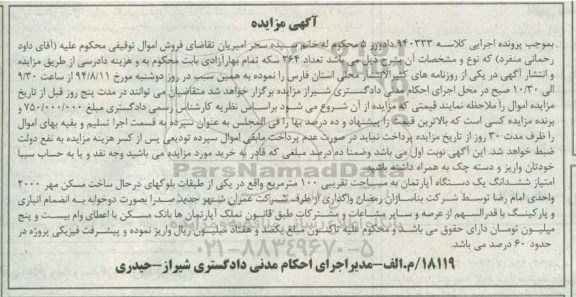 آگهی مزایده
بموجب پرونده اجرایی کلاسه ۹۴۰۳۳۳ دادورز ۵ محکوم له خانم سیده سحر امیریان تقاضای فروش اموال توقیفی محکوم علیه (آقای داود
رحمانی منفرد) که نوع و مشخصات آن بشرح ذیل می باشد تعداد ۳۶۴ سکه تمام بهارآزادی بابت محکوم به و هزینه دادرسی از طریق مزایده
و انتشار آگهی در یکی از روزنامه های کثیرالانتشار محلی استان فارس را نموده به همین سبب در روز دوشنبه مورخ ۹۴/۸/۱۱ از ساعت ۹/۳۰
الی ۱۰/۳۰ صبح در محل اجرای احکام مدنی دادگستری شیراز مزایده برگزار خواهد شد متقاضیان می توانند در مدت پنج روز قبل از تاریخ
مزایده اموال را ملاحظه نمایند قیمتی که مزایده از آن شروع می شود براساس نظریه کارشناس رسمی دادگستری مبلغ ۷۵۰/۰۰۰/۰۰۰ و
برنده مزایده کسی است که بالاترین قیمت را پیشنهاد و ده درصد بها را فی المجلس به عنوان سپرده به قسمت اجرا تسلیم و بقیه بهای اموال
را ظرف مدت ۳۰ روز از تاریخ مزایده پرداخت نماید در صورت عدم پرداخت مابقی اموال سپرده تودیعی پس از کسر هزینه مزایده به نفع دولت
ضبط خواهد شد. این آگهی نوبت اول می باشد وضمنا ده درصد مبلغی که قادر به خرید مورد مزایده می باشید وجه نقد و یا به حساب سیبا
خودتان واریز و دسته چک به همراه داشته باشید.
امتیاز ششدانگ یک دستگاه آپارتمان به مساحت تقریبی ۱۰۰ مترمربع واقع در یکی از طبقات بلوکهای درحال ساخت مسکن مهر ۲۰۰۰
واحدی امام رضا توسط شرکت بناسازان رمضان واگذاری از طرف شرکت عمران شهر جدید صدرا بصورت دوخوابه به انضمام انباری
و پارکینگ با قدرالسهم از عرصه و سایر مشاعات و مشترکات طبق قانون تملک آپارتمان ها بانک مسکن با اعطای وام بیست و پنج
میلیون تومان دارای حقوق می باشد و محکوم علیه تاکنون مبلغ یکصد و هفتاد میلیون ریال واریز نموده و پیشرفت فیزیکی پروژه در
حدود ۶۰ درصد می باشد.
۱۸۱۱۹/م.الف-مدیراجرای احکام مدنی دادگستری شیراز-حیدری
ParsNamadData
۰۲۱-۸۸۳۴۹۶۷۰-۵